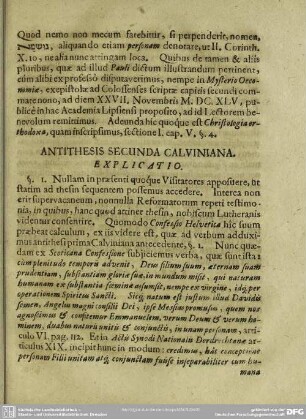 Quod nemo non mecum fatebitur, si perpenderit, nomen
aliquando etiam personam denotare, ut II. Corinth.
X. 10, ne alia nunc arringam loca. Quibus de tamen & aliis
pluribus, quæ ad illud Pauli dictum illustrandum pertinent,
cum alibi ex professò disputaverimus, nempe in Mysterio Oeco-
nomiæ, ex epistolæ ad Colossenses scriptæ capitis secundi com-
mate nono, ad diem XXVII, Novembris M. DC. XLV, pu-
blicè in hac Academia Lipsiensi proposito, ad id Lectorem be-
nevolum remittimus. Adema hic quoque est Christologia or-
thodoxa, quam inscripsimus, sectione I. cap. V. §. 4.
ANTITHESIS SECUNDA CALVINIANA.
EXPLICATIO.
§. 1. Nullam in præsenti quoque Visitatores apposuere, ut
statim ad thesin sequentem possemus accedere. Interea non
erit supervacaneum, nonnulla Reformatorum repeti testimo-
nia, in quibus, hanc quod attinet thesin, nobiscum Lutheranis
videntur consentire. Quomodo Confessio Helvetia hic suum
præbeat calculum, ex iis videre est, quæ ad verbum adduxi-
mus antithesi prima Calviniana antecedente, §. 1. Nunc quæ-
dam ex Scoticana Confessione subjiciemus verba, quæ sunt ista:
cum plenitudo temporis advenit, Deus filium suum, æternam suam
prudentiam, substantiam gloriæ suæ, in mundum misit, qui naturam
humanam ex substantia fœminæ assumsit, nempe ex virgine, idque per
operationem Spiritus Sancti. Sic natum est justum illud Davidis
semen, Angelus magni consilii Dei, ipse Messias promissus, quem nos
agnoscimus & confitemur Emmanuelem, verum Deum & verum ho-
minem, duabus naturis unitis & conjunctis, in unam personam, arti-
culo VI. pag. 112. Et in Actis Synodi Nationalis Dordrechtanæ ar-
ticulus XIX. incipit hunc in modum: credimus, hac conceptione
personam Filii unitam atque conjunctam fuisse inseparabiliter cum hu-
mana